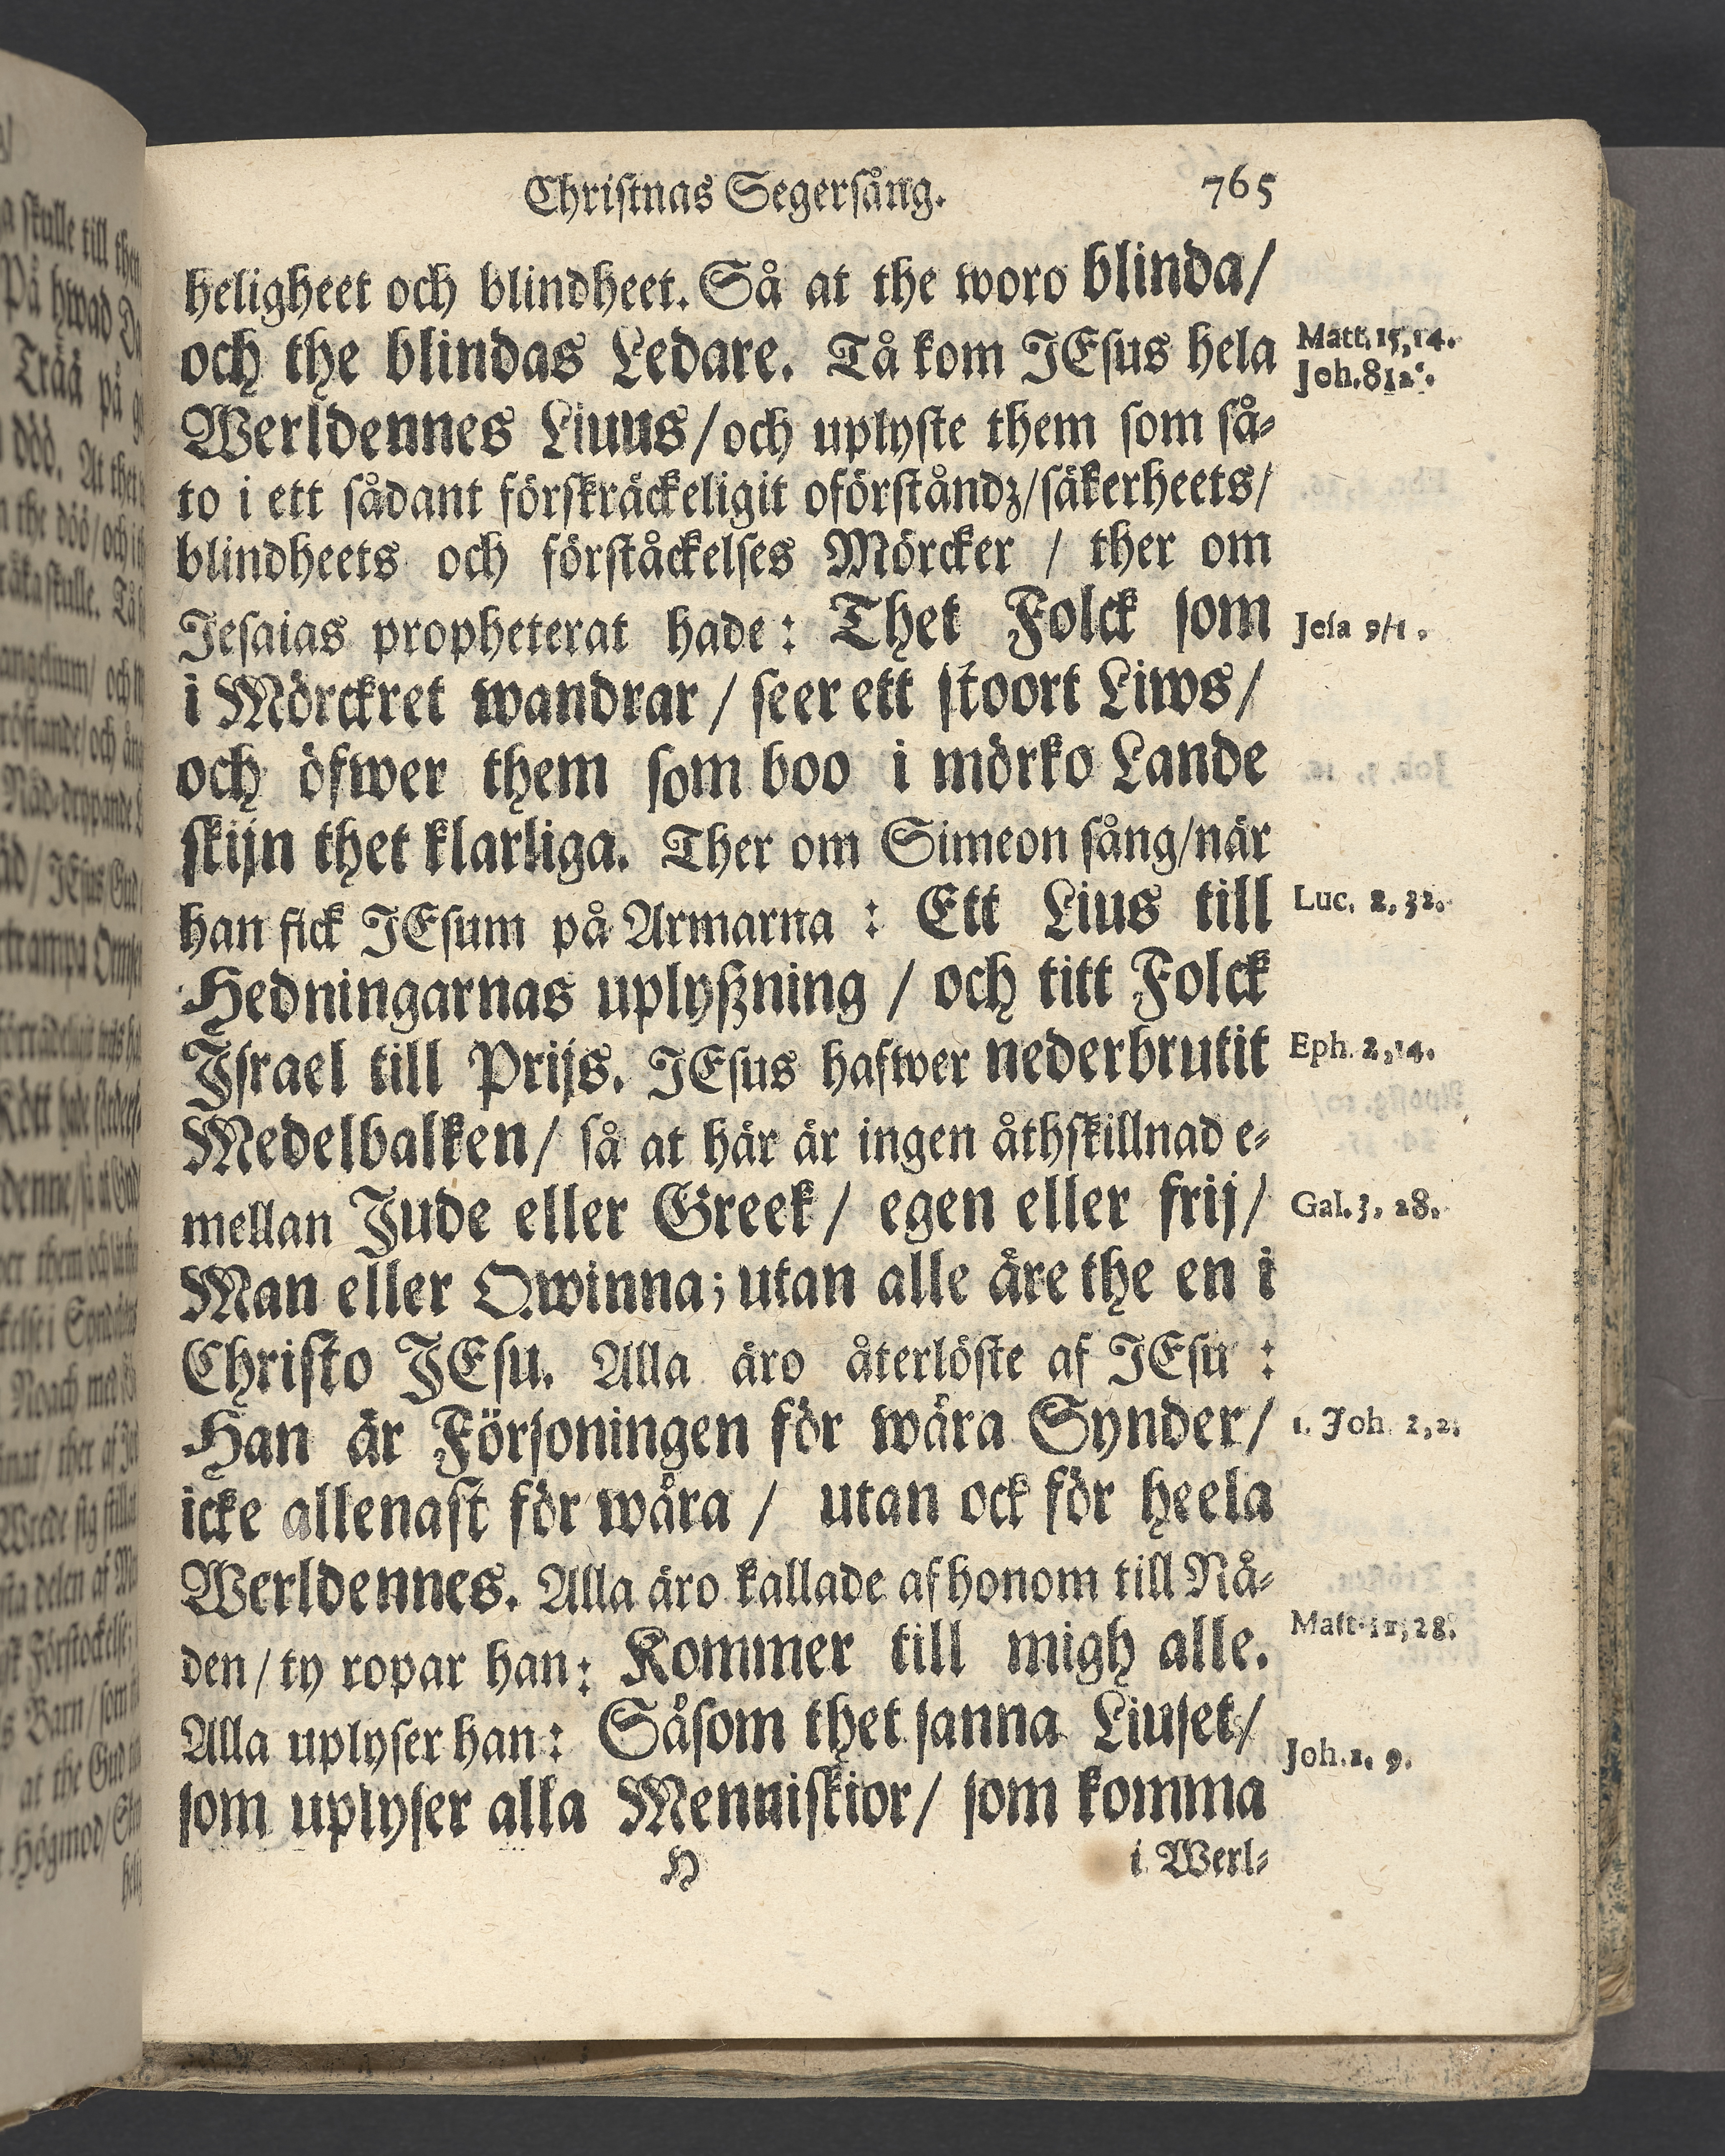 Christnas Segersång. 765
heligheet och blindheet. Så at the woro blinda/
och the blindas Ledare. Tå kom JEsus hela
Matt. 15, 14.
Joh. 8
Werldennes Liuus/och uplyste them som så-
to i ett sådant förskräckeligit oförståndz/säkerheets/
blindheets och förståckelses Mörcker / ther om
Jesaias propheterat hade: Thet Folck som
Jesa 9/1.
i Mörckret wandrar / seer ett stoort Liws/
och öfwer them som boo i mörko Lande
skijn thet klarliga. Ther om Simeon sång/när
han fick JEsum på Armarna : Ett Lius till
Luc. 2, 32.
Hedningarnas uplyßning / och titt Folck
Israel till Prijs. JEsus hafwer nederbrutit
Eph. 2, 14.
Medelbalken/ så at här är ingen åthskillnad e-
mellan Jude eller Greek/ egen eller frij/
Gal. 3. 28.
Man eller Qwinna; utan alle äre the en i
Christo JEsu. Alla äro återlöste af JEsu :
Han är Försoningen för wåra Synder/
1. Joh. 2, 2.
icke allenast för wåra / utan ock för heela
Werldennes. Alla äro kallade af honom till Nå-
den/ty ropar han: Kommer till migh alle.
Matt. 11, 28.
Alla uplyser han: Såsom thet sanna Liuset/
Joh. 1. 9.
som uplyser alla Menniskior/ som komma
H i Werl-